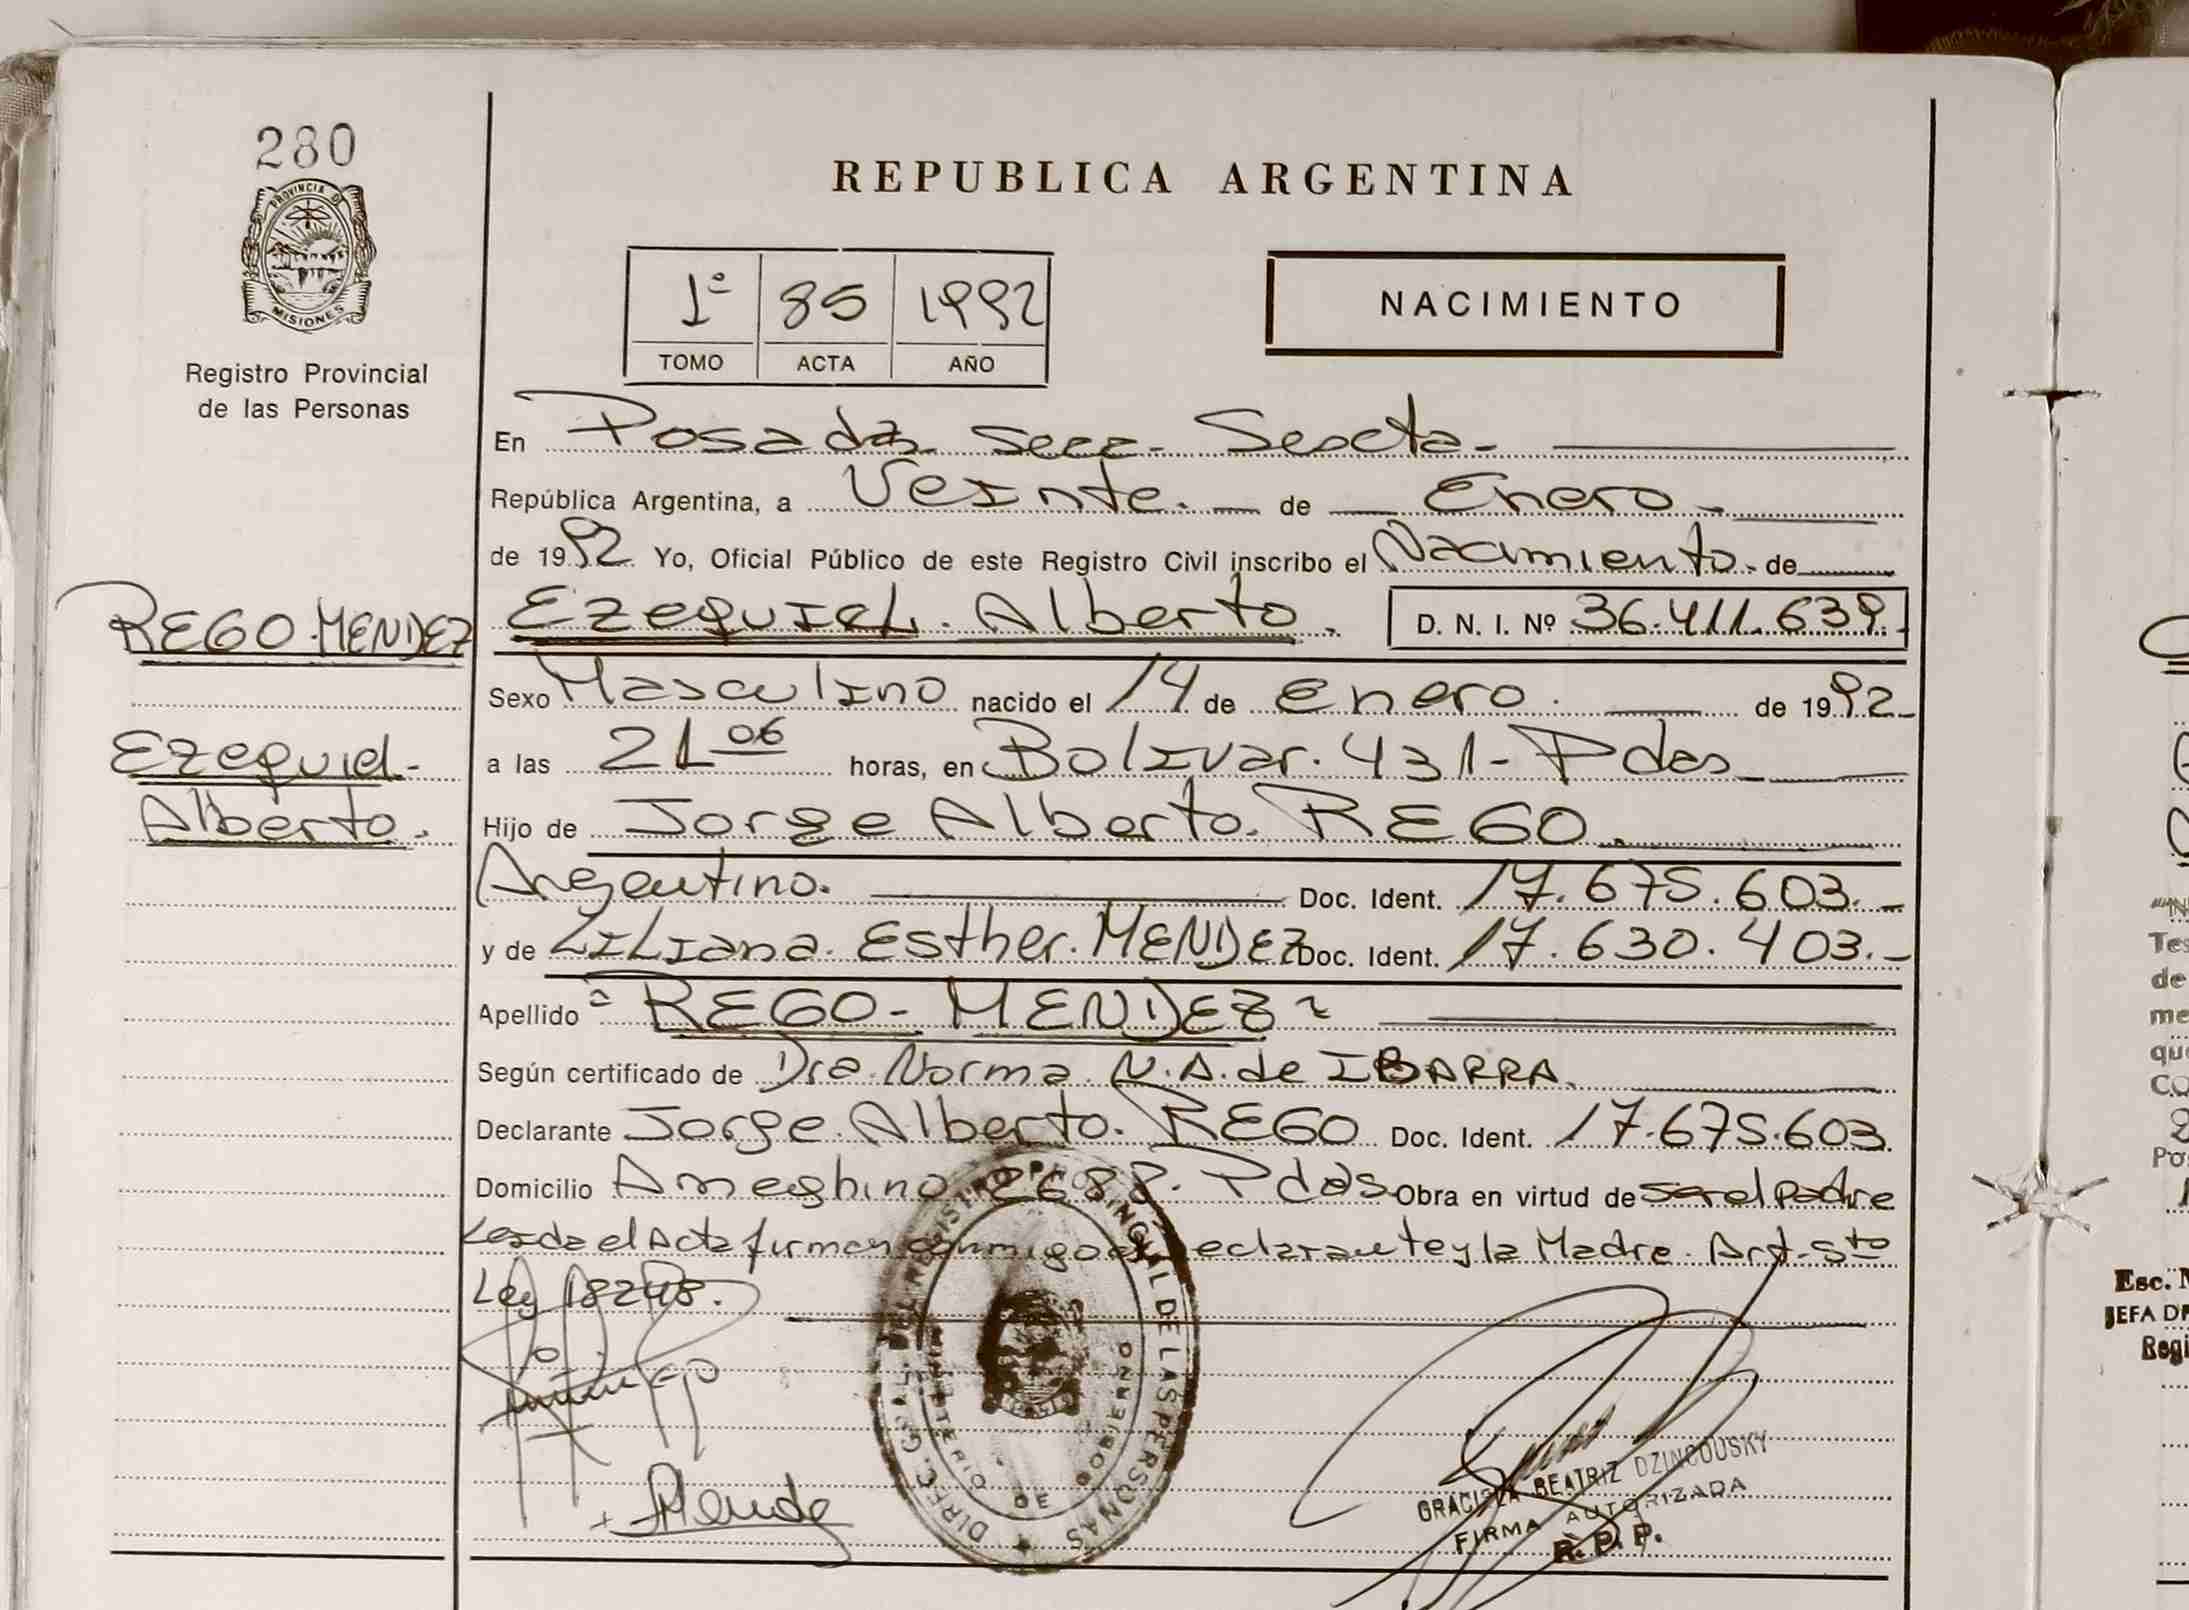 280
PROVINCIA DE
MISIONES
Registro Provincial
de las Personas
REPUBLICA ARGENTINA
1º 85 1992
TOMO ACTA AÑO
NACIMIENTO
En Posadas Secc. Sexta.
República Argentina, a Veinte. de Enero
de 1992 Yo, Oficial Público de este Registro Civil inscribo el Nacimiento de
REGO MENDEZ
Ezequiel Alberto. D. N. I. Nº 36.411.639.
Sexo Masculino nacido el 14 de Enero. de 1992
Ezequiel
Alberto.
a las 21 06 horas, en Bolivar. 431- Pdas
Hijo de Jorge Alberto. REGO
Argentino. Doc. Ident. 17.675.603.-
y de Liliana. Esther. MENDEZ Doc. Ident. 17.630.403.-
Apellido REGO - MENDEZ
Según certificado de Dra. Norma N. A. de IBARRA.
Declarante Jorge. Alberto. REGO Doc. Ident. 17.675.603.
Domicilio Ameghino 2688. Pdas Obra en virtud de ser el padre
Leida el Acta firman conmigo el Declarante y la Madre. Art. 5to
Ley 18248.
DIREC. GRAL. DEL REGISTRO PROVINCIAL DE LAS PERSONAS
MINISTERIO DE GOBIERNO
GRACIELA BEATRIZ DZINCOUSKY
FIRMA AUTORIZADA
R. P. P.
Esc.
JEFA